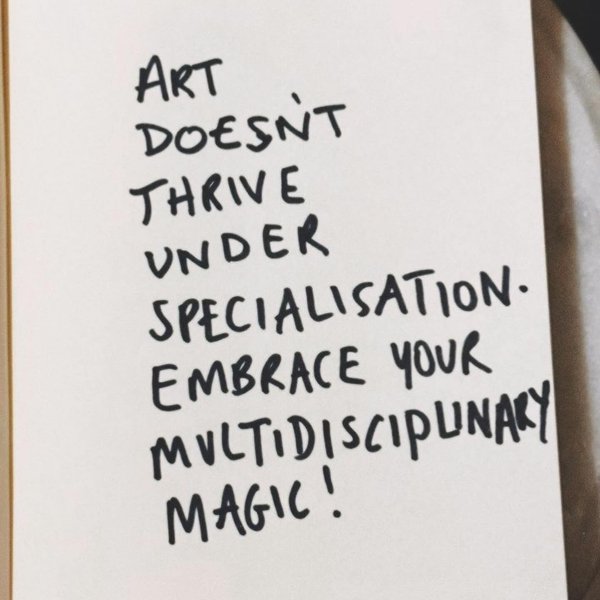 ART
DOESN'T
THRIVE
UNDER
SPECIALISATION.
EMBRACE YOUR
MULTIDISCIPLINARY
MAGIC!